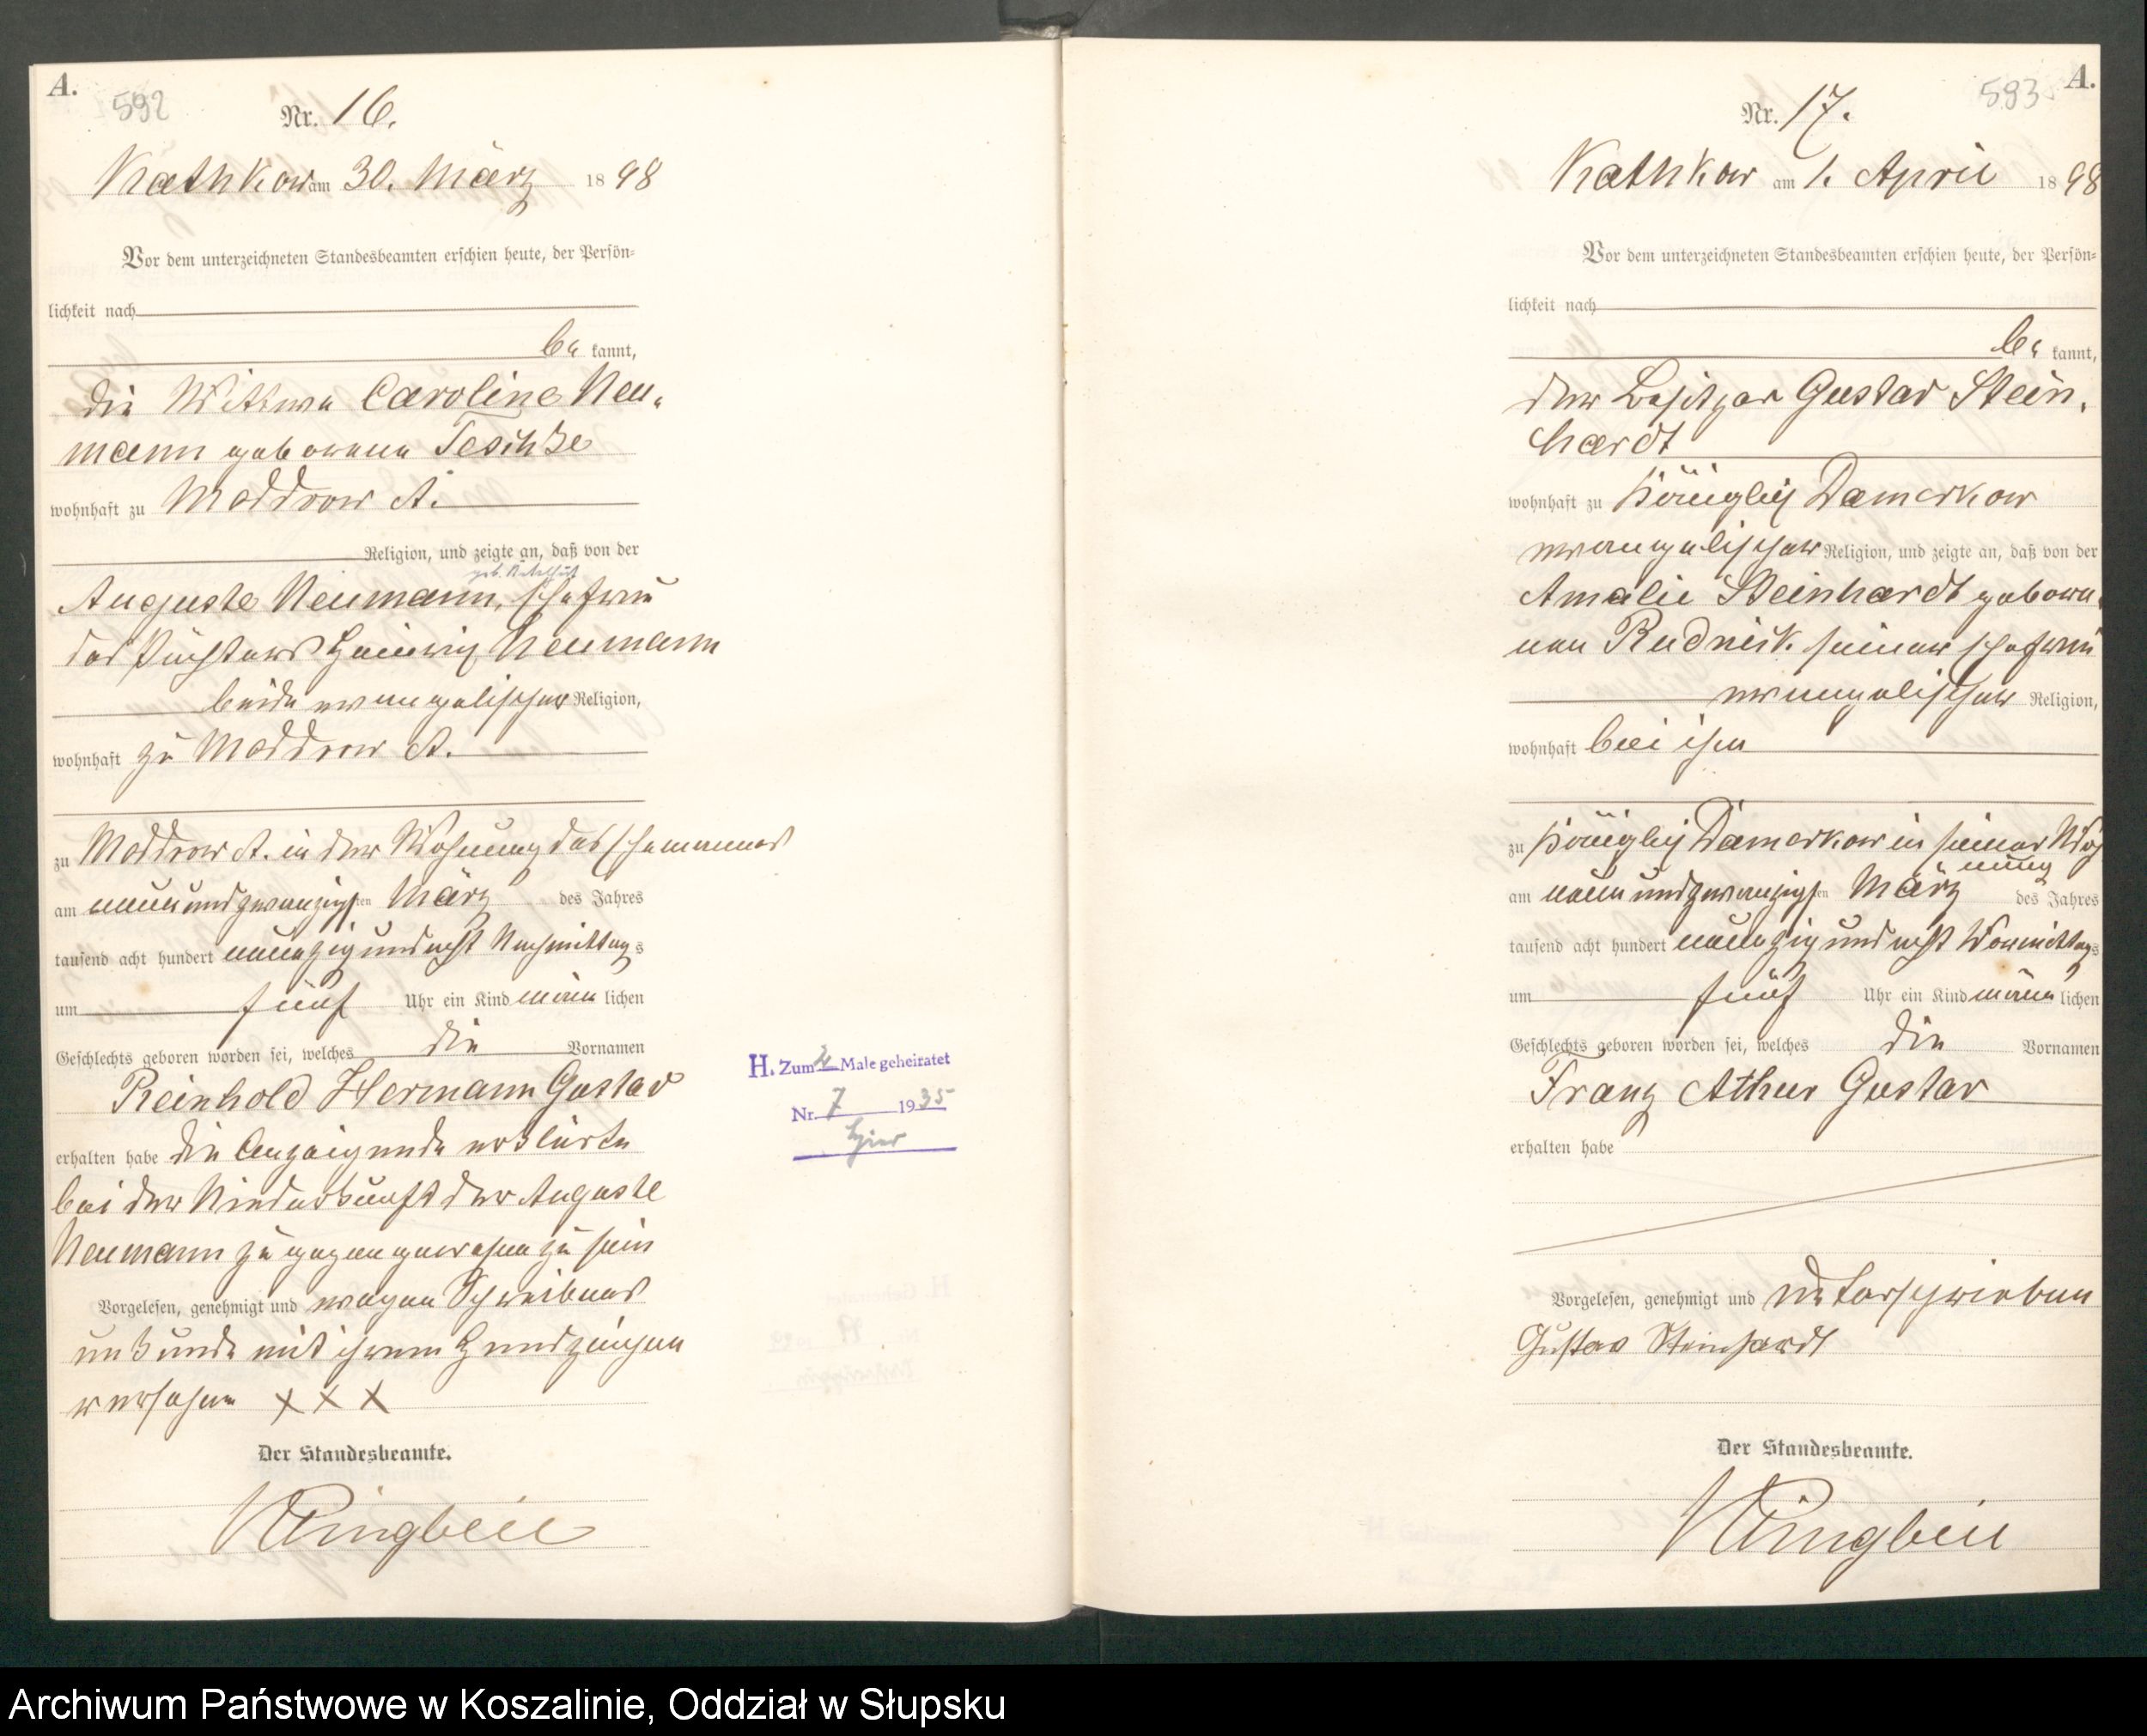 A.
592
Nr. 16.
Kathkow am 30. März 1898
Vor dem unterzeichneten Standesbeamten erschien heute, der Persön-
lichkeit nach
be kannt,
die Wittwe Caroline Neu-
mann geborene Teschke
wohnhaft zu Moddrow A.
Religion, und zeigte an, daß von der
geb.
Auguste Neumann, Ehefrau
des Heinrich Neumann
beide evangelischer Religion,
wohnhaft zu Moddrow A.
zu Moddrow A. in der Wohnung des Ehemannes
am neunundzwanzigsten März des Jahres
tausend acht hundert neunzig und acht Nachmittags
um fünf Uhr ein Kind männlichen
Geschlechts geboren worden sei, welches die Vornamen
Reinhold Hermann Gustav
erhalten habe die Anzeigende erklärte
bei der Niederkunft der Auguste
Neumann zugegen gewesen zu sein
Vorgelesen, genehmigt und wegen Schreibens
unkunde mit ihrem Handzeichen
versehen XXX
Der Standesbeamte.
Klingbeil
H. Zum 2 Male geheiratet
Nr. 7 1935
hier
593
A.
Nr. 17.
Kathkow am 1. April 1898
Vor dem unterzeichneten Standesbeamten erschien heute, der Persön-
lichkeit nach
be kannt,
der Besitzer Gustav Stein-
hardt
wohnhaft zu Königlich Damerkow
evangelischer Religion, und zeigte an, daß von der
Amalie Steinhardt gebore-
nen Rudnick seiner Ehefrau
evangelischer Religion,
wohnhaft bei ihm
zu Königlich Damerkow in seiner Woh
nung
am neunundzwanzigsten März des Jahres
tausend acht hundert neunzig und acht Vormittags
um fünf Uhr ein Kind männlichen
Geschlechts geboren worden sei, welches die Vornamen
Franz Athur Gustav
erhalten habe
Vorgelesen, genehmigt und unterschrieben
Gustav Steinhardt
Der Standesbeamte.
Klingbeil
Archiwum Państwowe w Koszalinie, Oddział w Słupsku